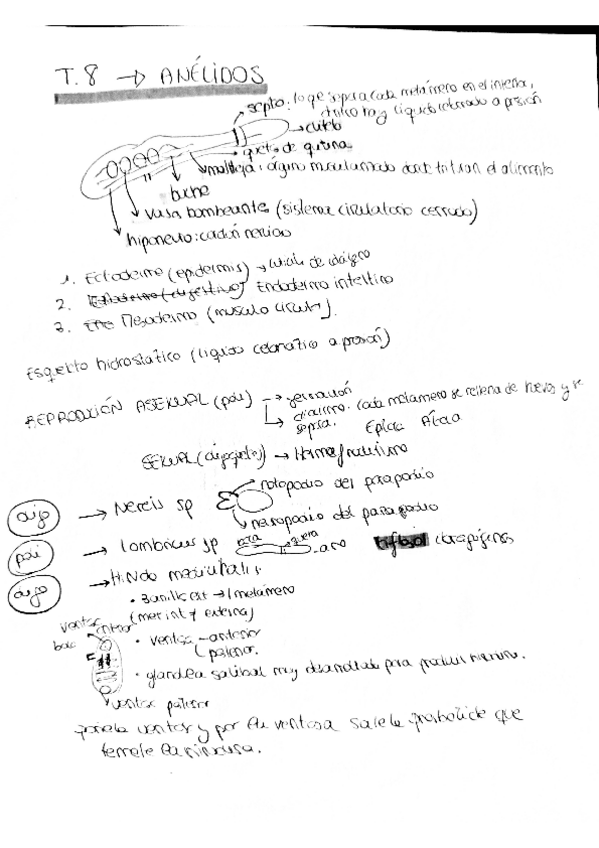 T.8 → ANÉLIDOS
septo: lo que separa cada metámero en el interior,
dentro hay líquido celomado a presión
cutícula
queta de quitina
molleja: órgano musculamado donde trituran el alimento
buche
vasos bombeantes (sistema circulatorio cerrado)
hiponeuro: cadena nerviosa
1. Ectodermo (epidermis) → cutícula de colágeno
2. Endodermo intestino
3. Mesodermo (musculo circular).
Esqueleto hidrostático (liquido celomático a presión)
REPRODUCCIÓN ASEXUAL (poli) → gemación
→ cada metamero se rellena de huevos y se
separa. Epitoca Atoca
SEXUAL (oligoquetos) → Hermafroditismo
notopodio del parapodio
oligo → Nereis sp
neuropodio del parapodio
poli → lombricus sp boca ano
oligo → Hirudo medicinalis
• 3 anillos ext → 1 metámero
(mer int ≠ externa)
ventosa anterior
boca
• ventosa – anterior
posterior.
• glandula salibal muy desarrollada para producir
ventosa posterior
pone la ventosa y por la ventosa sale la probóscide que